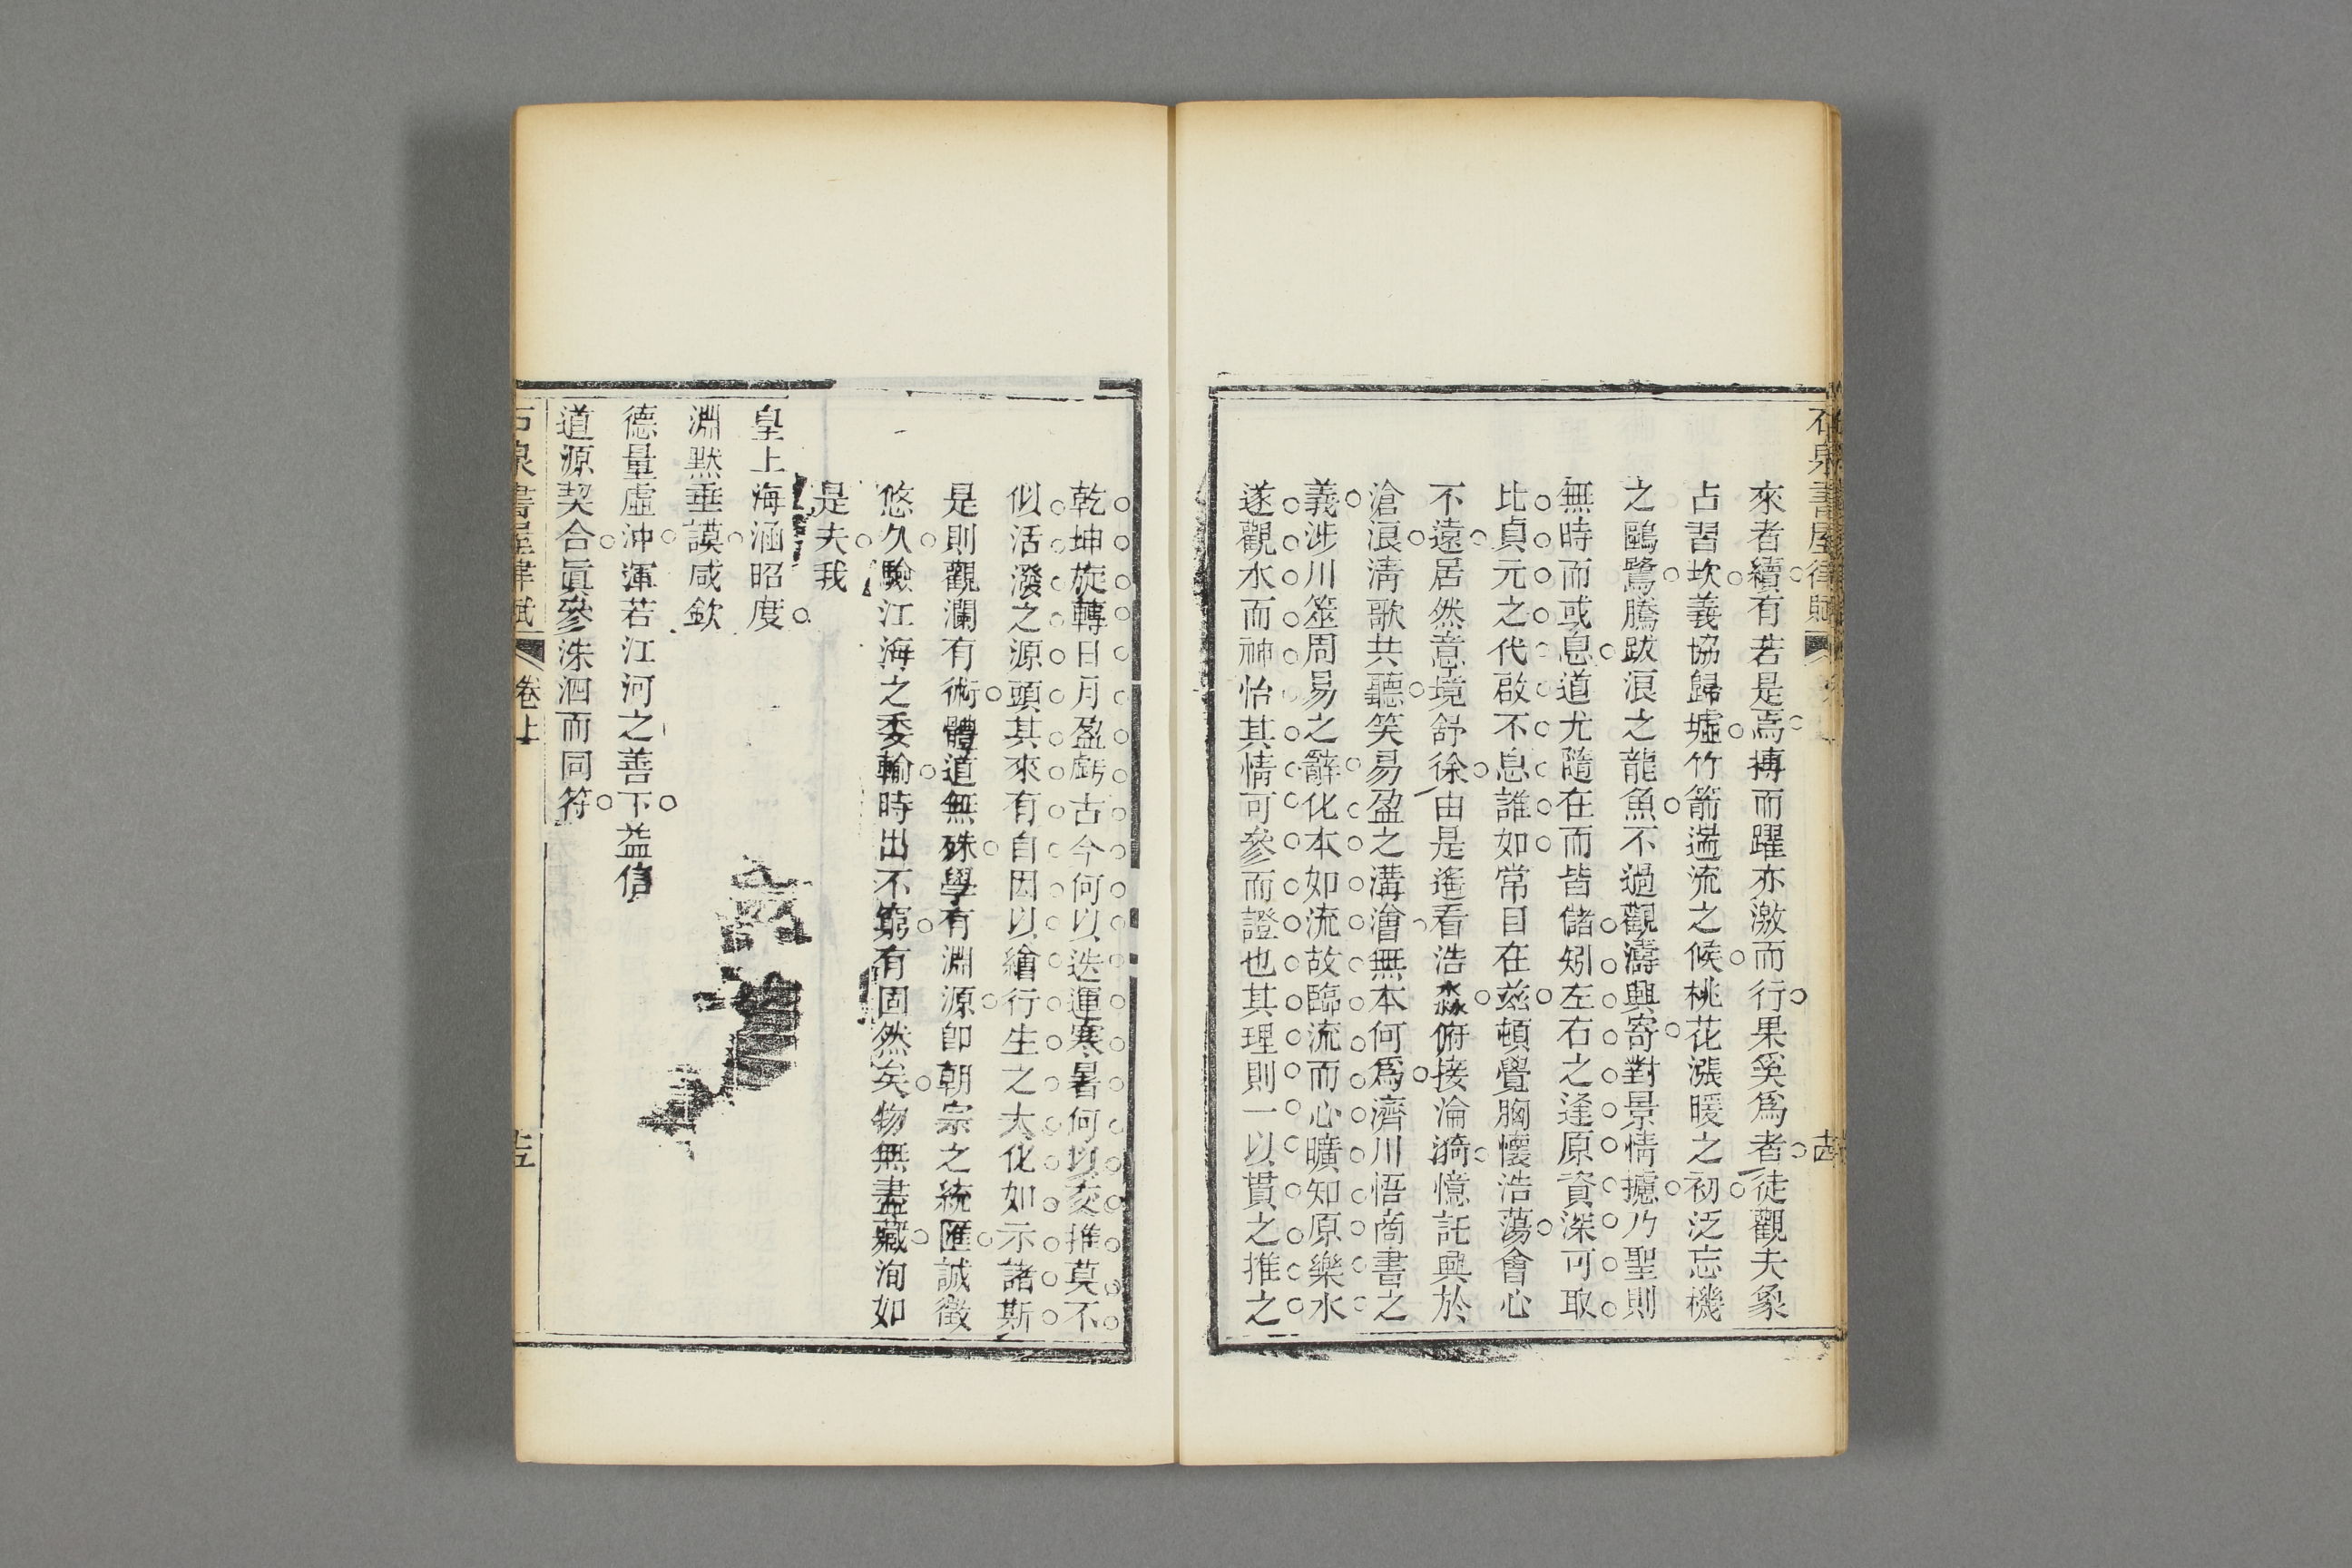 來者續有若是焉搏而躍亦激而行果奚爲者徒觀夫象
占習坎義協歸墟竹箭湍流之候桃花漲暖之初泛忘機
之鷗鷺騰跋浪之龍魚不過觀濤興寄對景情攄乃聖則
無時而或息道尤隨在而皆儲矧左右之逢原資深可取
比貞元之代啟不息誰如常目在茲頓覺胸懷浩蕩會心
不遠居然意境舒徐由是遙看浩淼俯接淪漪憶託興於
滄浪淸歌共聽笑易盈之溝澮無本何爲濟川悟商書之
義涉川筮周易之辭化本如流故臨流而心曠知原樂水
遂觀水而神怡其情可參而證也其理則一以貫之推之
乾坤旋轉日月盈虧古今何以迭運寒暑何以交推莫不
似活潑之源頭其來有自因以繪行生之大化如示諸斯
是則觀瀾有術體道無殊學有淵源卽朝宗之統匯誠徵
悠久驗江海之委輸時出不窮有固然矣物無盡藏洵如
是夫我
皇上海涵昭度
淵默垂謨咸欽
德量虛沖渾若江河之善下益信
道源契合眞參洙泗而同符
石泉書屋律賦
卷上